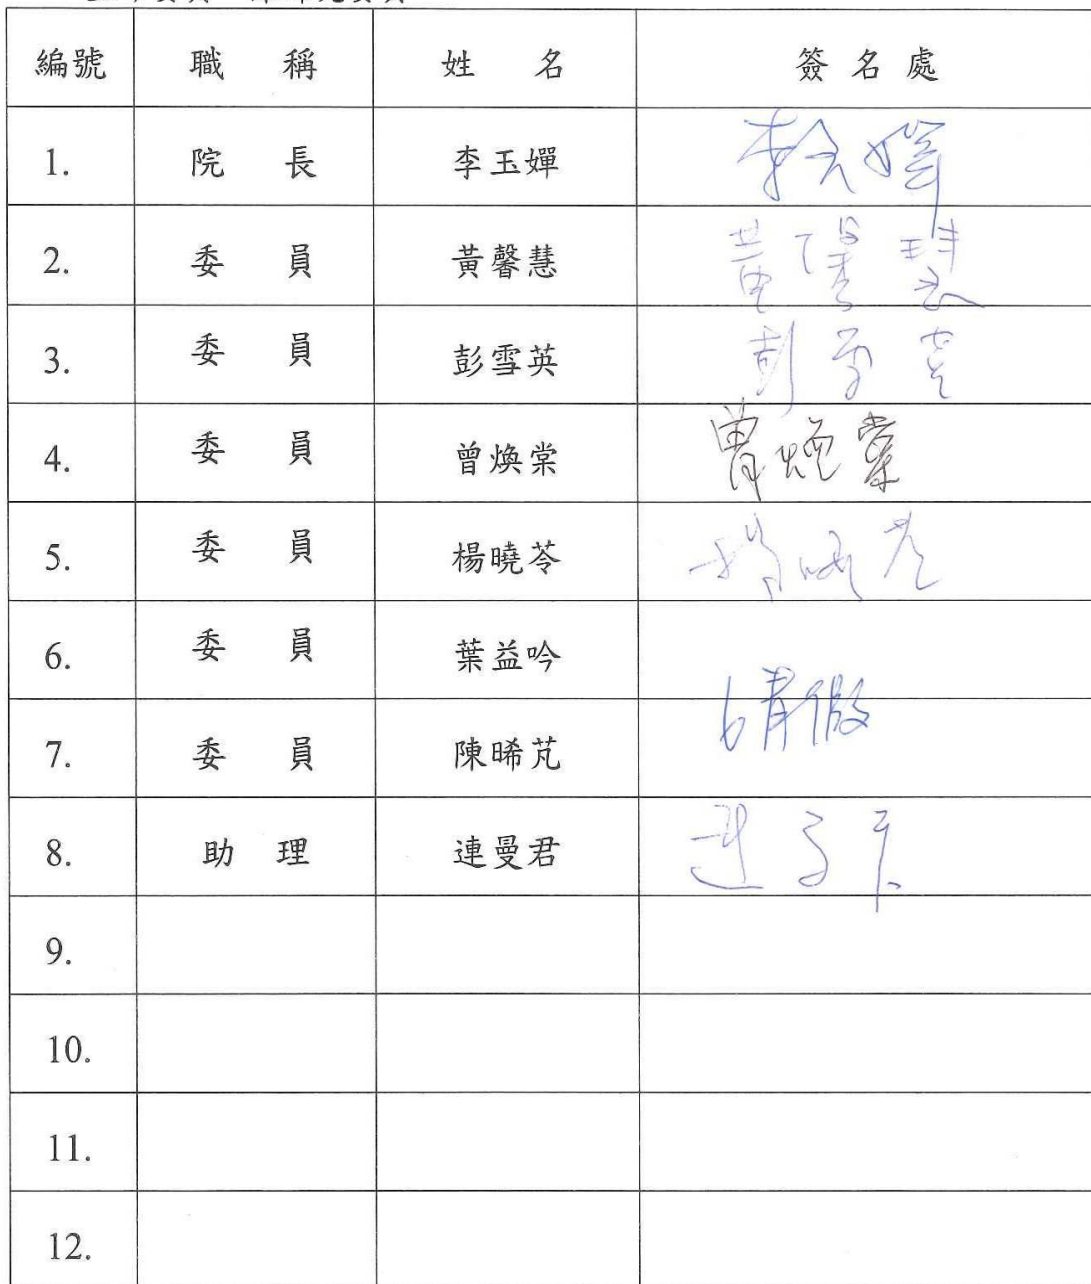 編號 職稱 姓名 簽名處
1. 院長 李玉嬋 李玉嬋
2. 委員 黃馨慧 黃馨慧
3. 委員 彭雪英 彭雪英
4. 委員 曾煥棠 曾煥棠
5. 委員 楊曉苓 楊曉苓
6. 委員 葉益吟
請假
7. 委員 陳晞芃
8. 助理 連曼君 連曼君
9.
10.
11.
12.